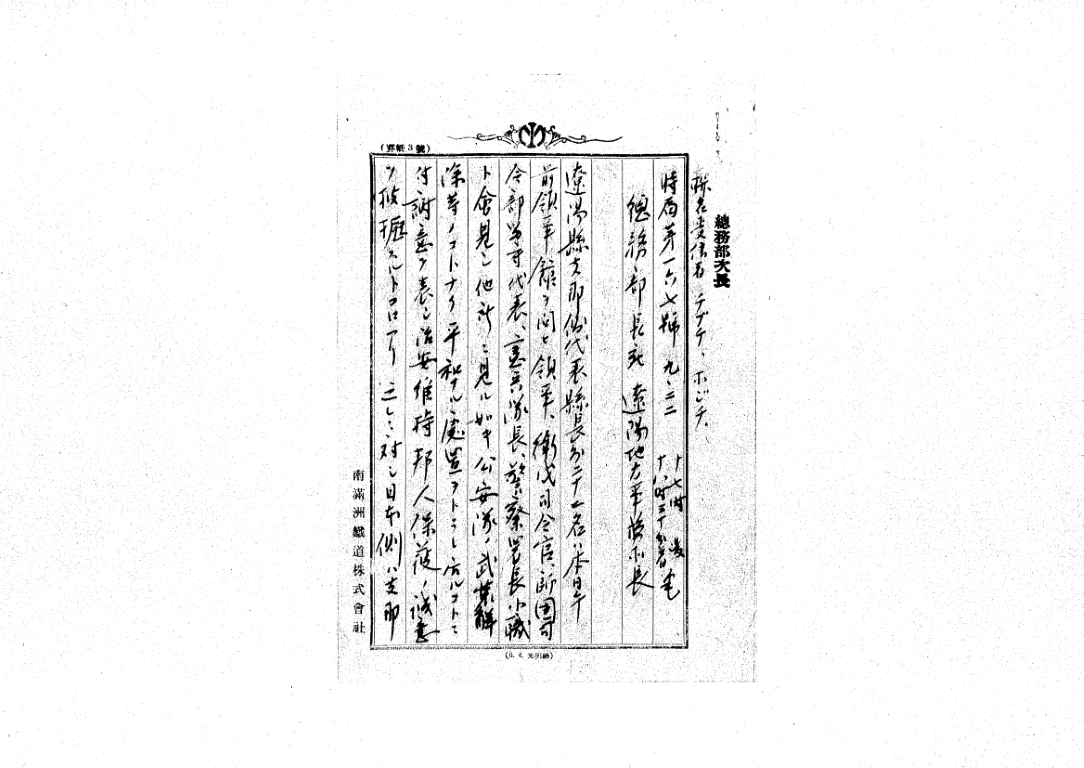 (罫紙3號)
總務部次長
聯名受信者 チブチ、ホジチ、
時局第一六七號 九、二二 十七時 發
十八時三十分着 電
總務部長宛 遼陽地方事務所長
遼陽縣支那側代表縣長外二十一名ハ本日午
前領事館ヲ問ヒ領事、衛戍司令官、師團司
令部留守代表、憲兵隊長、警察署長、小職
ト會見シ他所ニ見ル如キ公安隊ノ武裝解
除等ノコトナク平和ナル處置ヲトラレ居ルコトニ
付謝意ヲ表シ治安維持邦人保護ノ誠意
ヲ披瀝スルトコロアリ 之レニ對シ日本側ハ支那
南滿洲鐵道株式會社